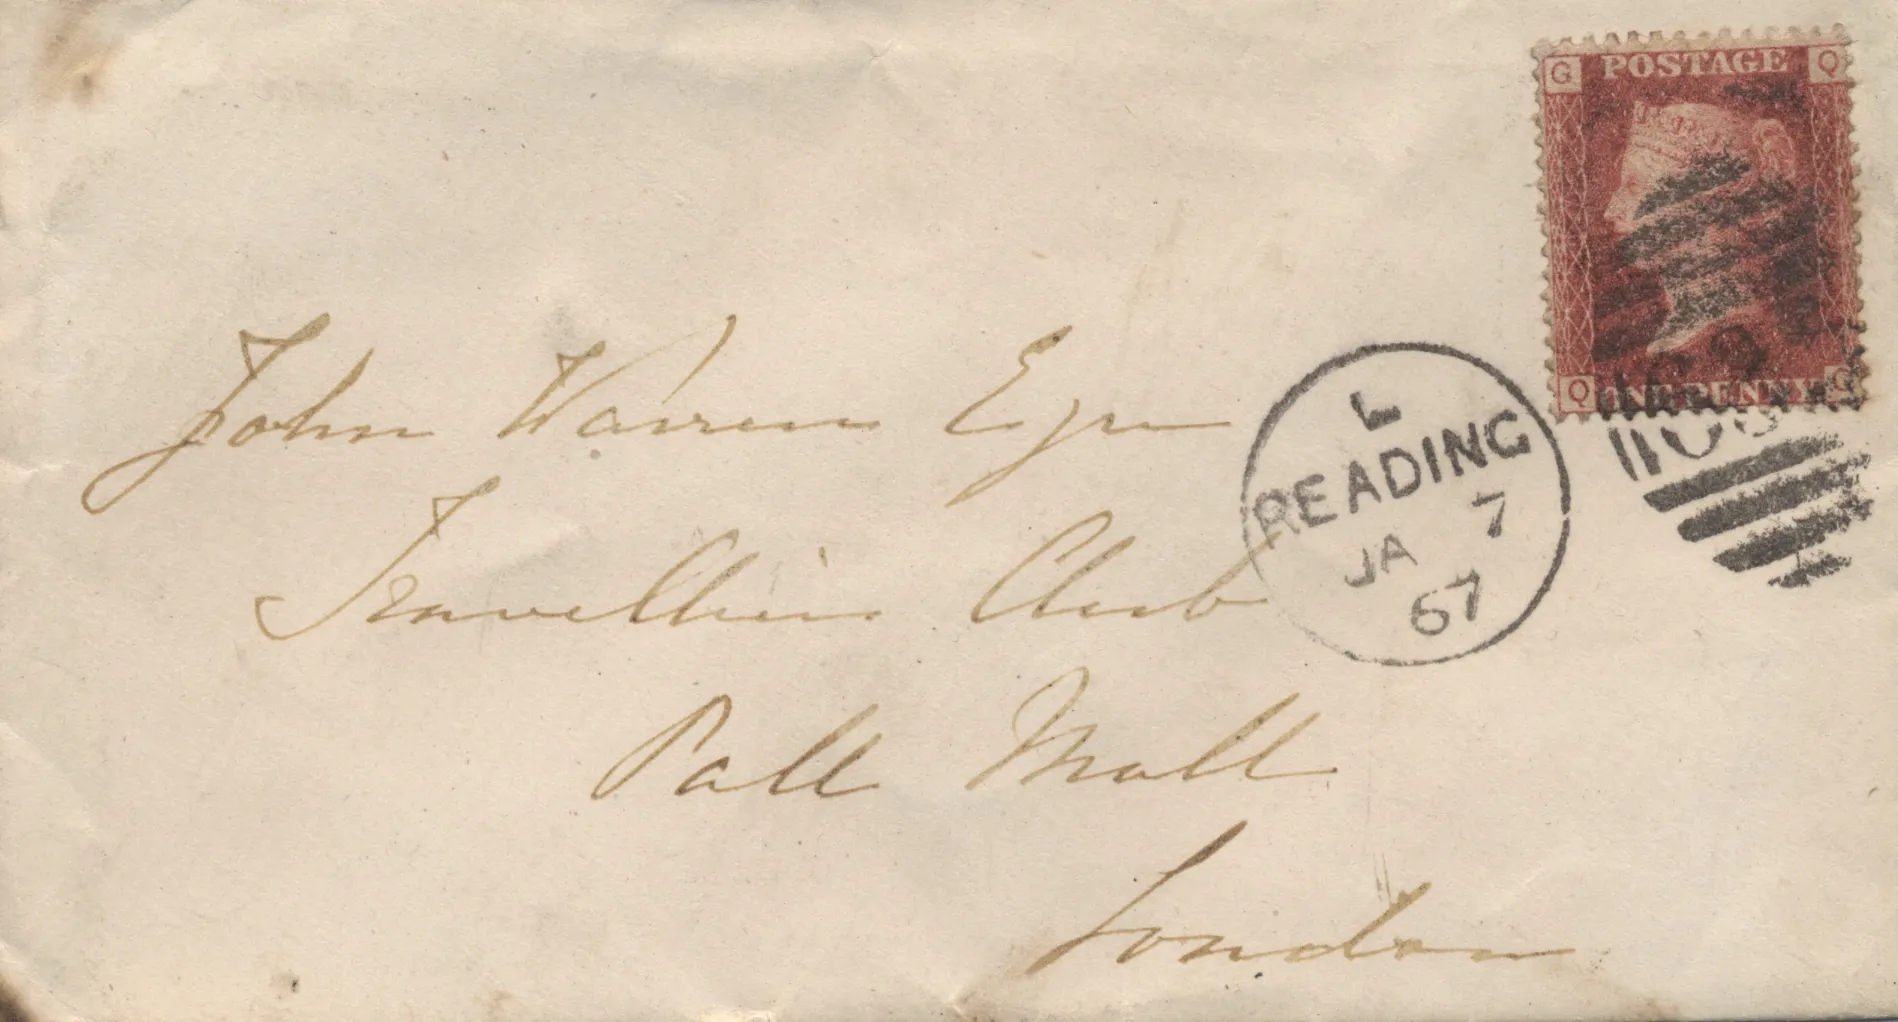 G POSTAGE Q
Q ONE PENNY G
John Warren Esqre
L
READING
JA 7
67
Travellers Club
Pall Mall
London